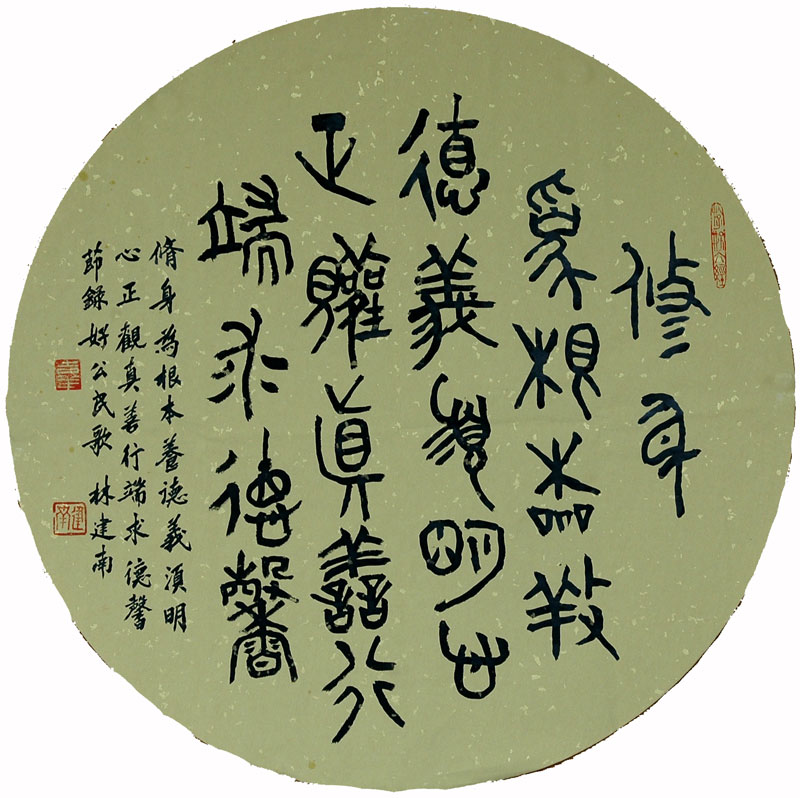 修身
為根本養
德義須明心
正觀真善行
端求德馨
脩身為根本養德義湏明
心正觀真善行端求德馨
節錄好公民歌 林建南
建南